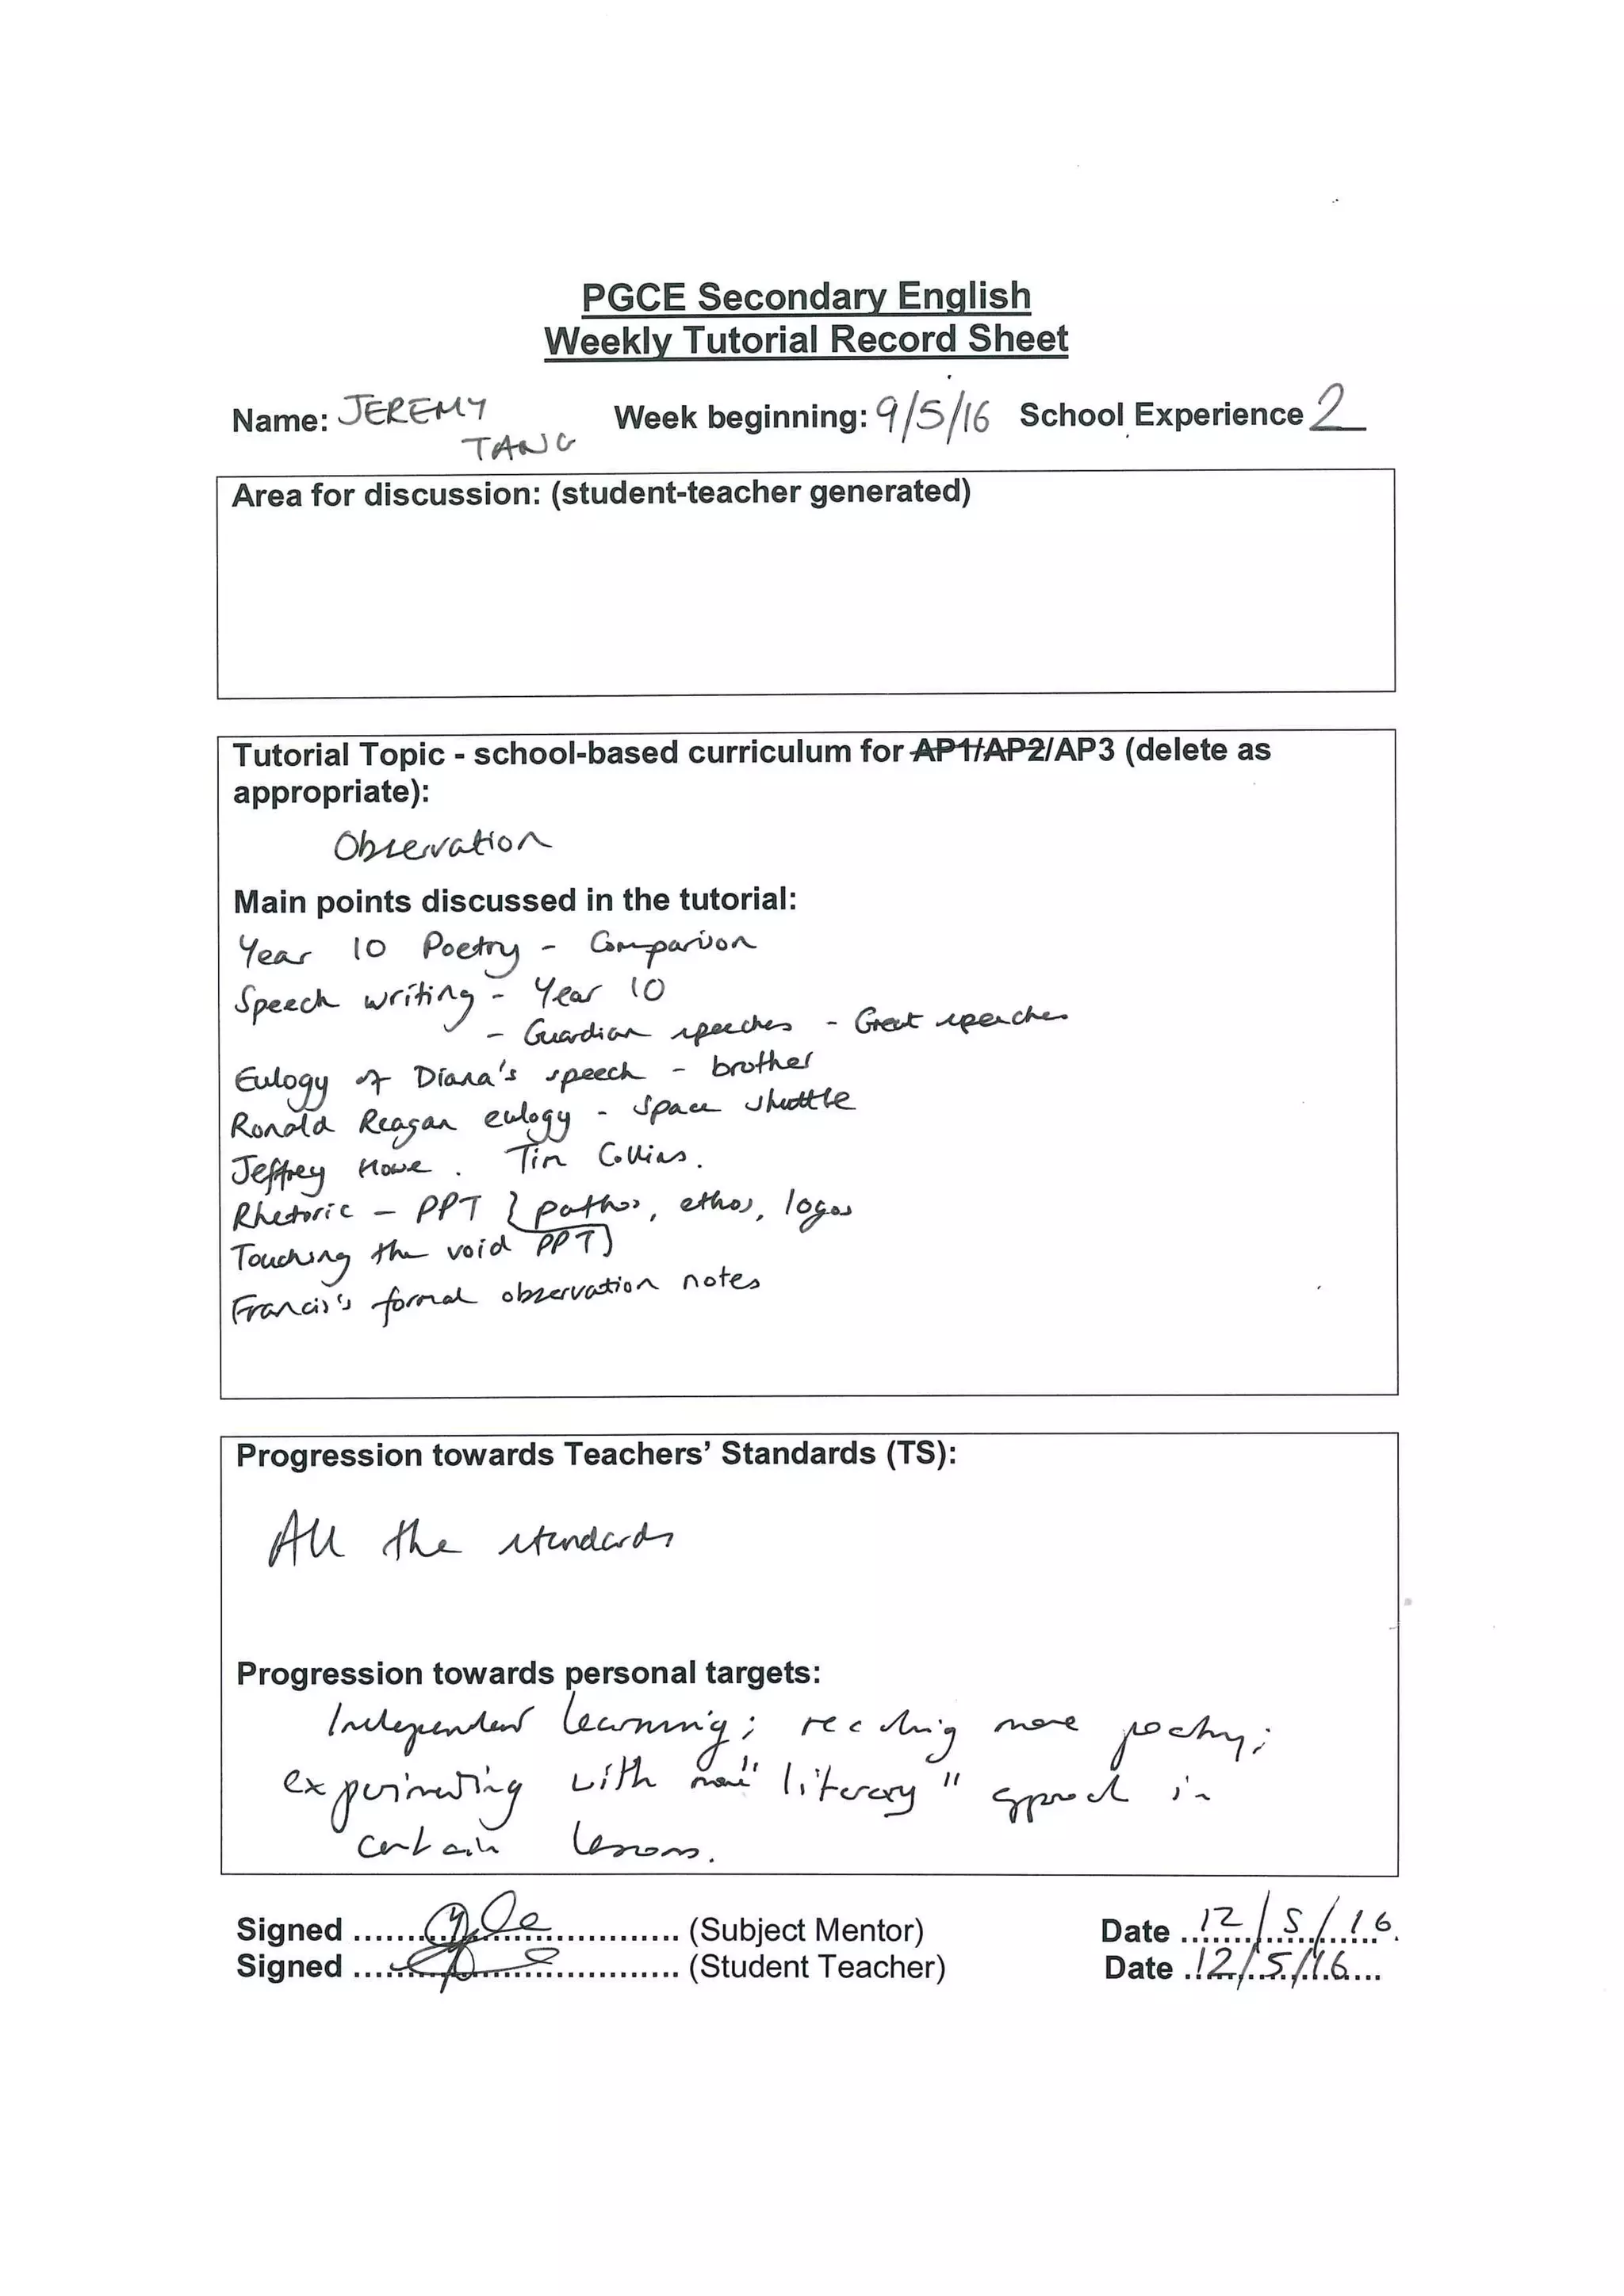 PGCE Secondary English
Weekly Tutorial Record Sheet
Name: JEREMY TANG Week beginning: 9/5/16 School Experience 2
Area for discussion: (student-teacher generated)
Tutorial Topic - school-based curriculum for AP1/AP2/AP3 (delete as
appropriate):
Observation
Main points discussed in the tutorial:
Year 10 Poetry - Comparison
Speech writing - Year 10
- Guardian speeches - Great speeches
Eulogy of Diana's speech - brother
Ronald Reagan eulogy - space shuttle
Jeffrey Howe. Tim Collins.
Rhetoric - PPT { pathos, ethos, logos
Touching the void PPT }
Francis's formal observation notes
Progression towards Teachers' Standards (TS):
All the standards
Progression towards personal targets:
Independent learning; reading more poetry;
experimenting with more "literary" approach in
certain lessons.
Signed .......... (Subject Mentor) Date 12/5/16.
Signed .......... (Student Teacher) Date 12/5/16